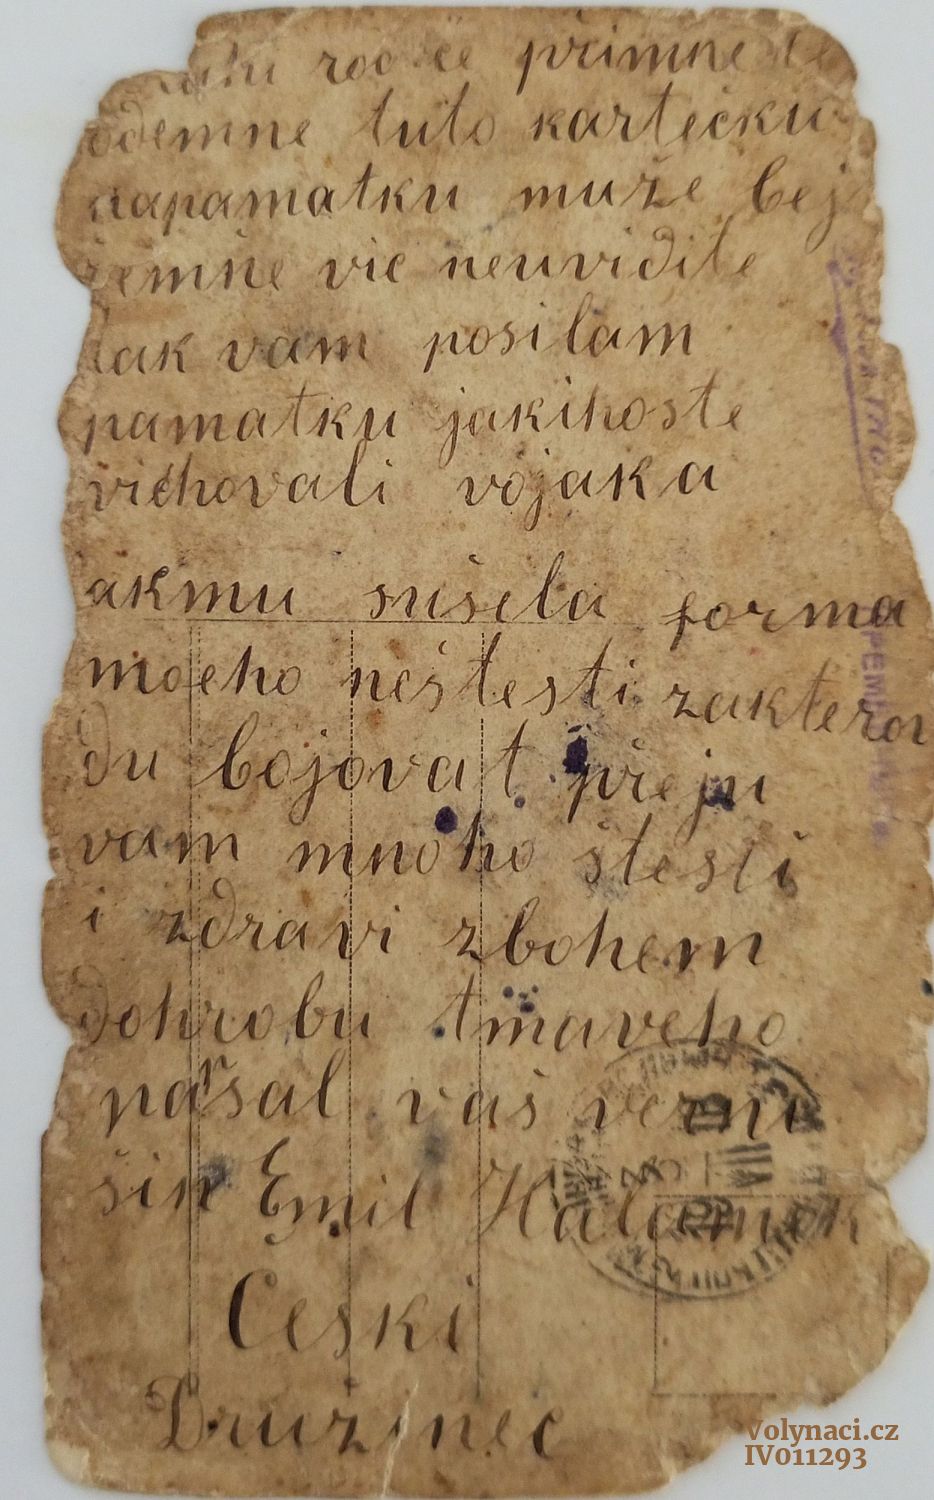 rodiče přimnete
odemne tuto kartečku
napamatku muže bej
žemne vic neuviďite
tak vam posilam
pamatku jakihoste
vichovali vojaka
akmu sušela forma
moeho neštesti zakteron
du bojovat přeju
vam mnoho štesti
i zdravi zbohem
dohrobu tmaveho
pasal vaš verni
šin Emil Halamek
Českí
Družinec
Volynaci.cz
IV011293